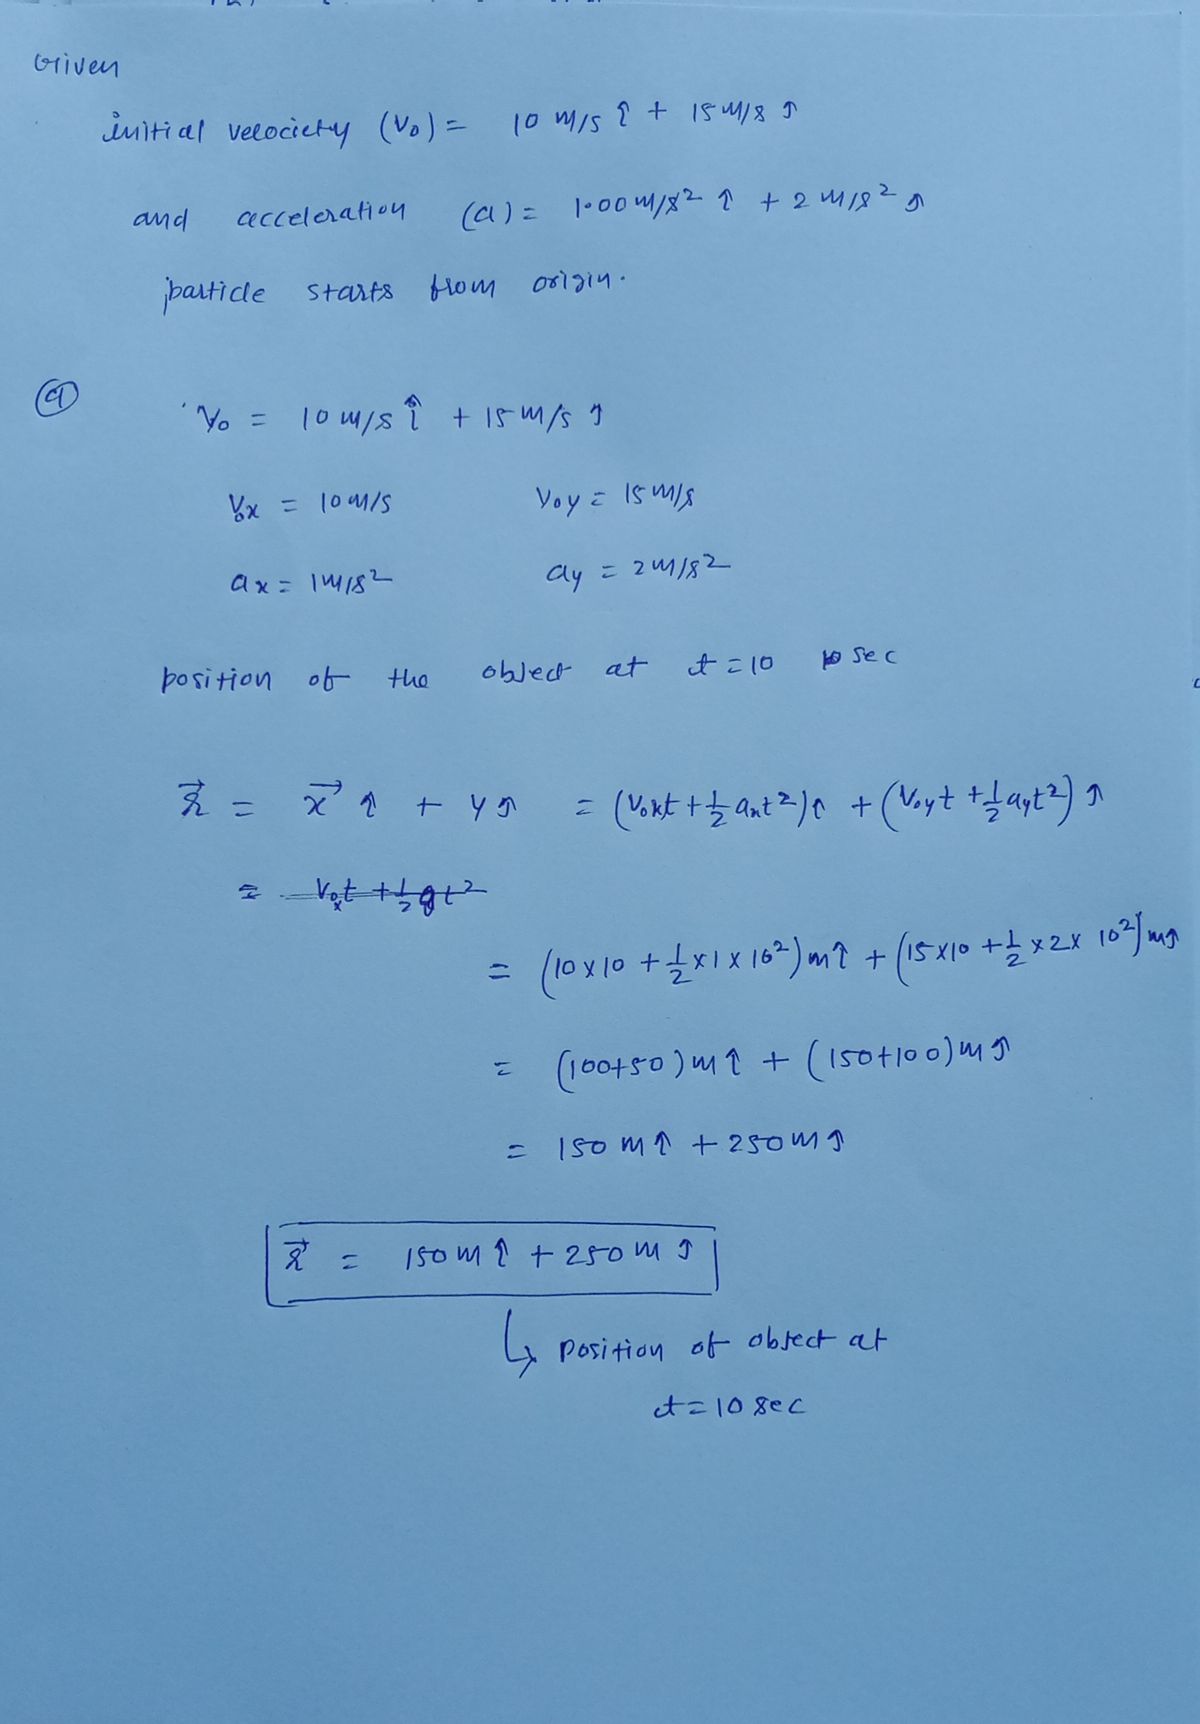 Given
initial velociety (V₀) = 10 m/s î + 15 m/s ĵ
and acceleration (a) = 1.00 m/s² î + 2 m/s² ĵ
particle starts from origin.
(a)
V₀ = 10 m/s î + 15 m/s ĵ
V₀x = 10 m/s V₀y = 15 m/s
ax = 1 m/s² ay = 2 m/s²
position of the object at t = 10 sec
r⃗ = x⃗ î + y ĵ = (V₀xt + ½ axt²) î + (V₀yt + ½ ayt²) ĵ
= V₀xt + ½ gt²
= (10 × 10 + ½ × 1 × 10²) m î + (15 × 10 + ½ × 2 × 10²) m ĵ
= (100+50) m î + (150+100) m ĵ
= 150 m î + 250 m ĵ
r⃗ = 150 m î + 250 m ĵ
↳ position of object at
t = 10 sec